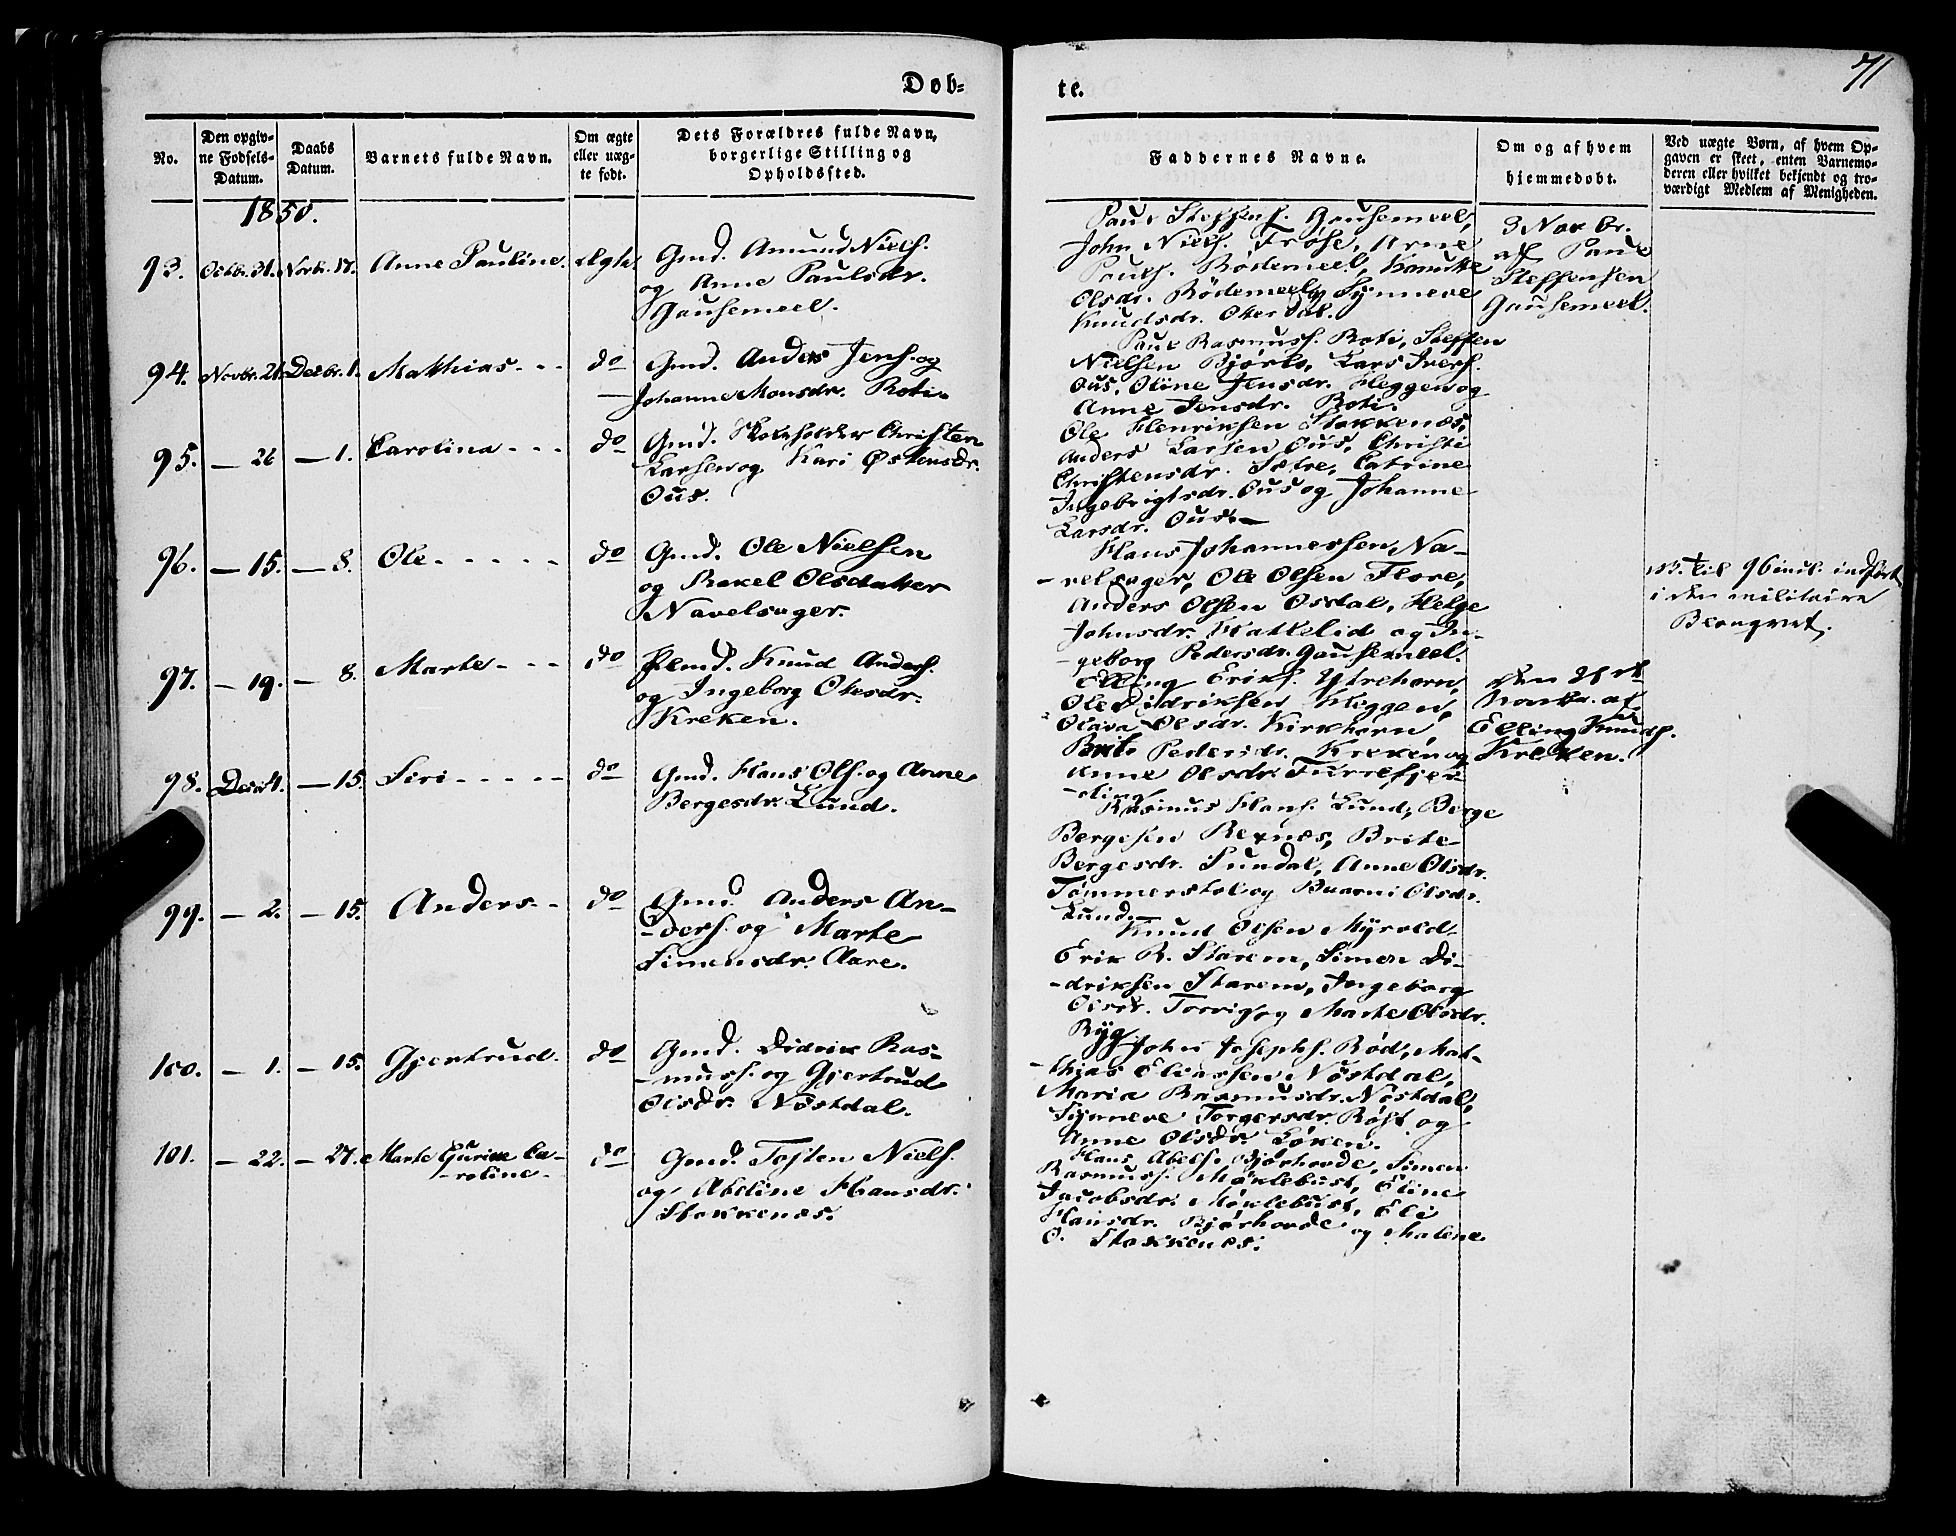 71
Dob-
te.
No.
Den opgiv-
ne Fødsels-
Datum.
Daabs
Datum.
Barnets fulde Navn.
Om ægte
eller uæg-
te født.
Dets Forældres fulde Navn,
borgerlige Stilling og
Opholdssted.
Faddernes Navne.
Om og af hvem
hjemmedobt.
Ved uægte Børn, af hvem Op-
gaven er skeet, enten Barnemo-
deren eller hvilket bekjendt og tro-
værdigt Medlem af Menigheden.
1850.
93. Octbr. 31. Novbr. 17. Anne Pauline. Ægte.
Gmd. Amund Niels.
og Anne Paulsdr.
Gausemeel.
Paul Steffens. Gausemeel,
John Niels. Frøse, Arne
Pauls. Rødemeel, Knutte
Olsdr. Rödemeel og Synneve
Knudsdr. Oterdal.
3 Novbr.
af Paul
Steffensen
Gausemeel.
94. Novbr. 21. Decbr. 1. Mathias - - - do
Gmd. Anders Jens. og
Johanne Monsdr. Roti.
Paul Rasmuss. Roti, Steffen
Nielsen Bjørlo, Lars Ivers.
Ous, Oline Jensdr. Heggen og
Anne Jensdr. Roti.
95. — 26 — 1. Carolina - - - do
Gmd. Skoleholder Christen
Larsen og Kari Østensdr.
Ous.
Ole Henriksen Stokkenæs,
Anders Larsen Ous, Christi
Christensdr. Sætre, Catrine
Ingebrigtsdr. Ous og Johanne
Larsdr. Ous. —
96. — 15. — 8. Ole - - - - - do
Gmd. Ole Nielsen
og Rakel Olsdatter
Navelsager.
Hans Johannessen Na-
-velsager, Ole Olsen Flore,
Anders Olsen Osdal, Helge
Johnsdr. Hatlelid og In-
-geborg Pedersdr. Gausemeel.
til 96 incl. indført
i den militaire
97. — 19. — 8. Marte - - - do
Knud Anders.
og Ingeborg Olesdr.
Kreken.
Elling Eriks. Ytrehorn,
Ole Didriksen Heggen,
Olava Olsdr. Kirkhorn,
Brite Pedersdr. Kreken og
Anne Olsdr. Turrefjer-
-ding
Elling Knuds.
Kreken.
98. Decbr 4. — 15. Siri - - - - - do
Gmd. Hans Ols. og Anne
Bergesdr. Lund.
Rasmus Hans. Lund, Berge
Bergesen Rexnæs, Brite
Bergesdr. Sundal, Anne Olsdr.
Tømmerstol og Olsdr.
Lund. —
99. — 2. — 15. Anders - - do
Gmd. Anders An-
-ders. og Marte
Simensdr. Aare.
Knud Olsen Myvold,
Erik R. Starem, Simen Di-
-driksen Starem, Ingeborg
Olsdr. Torvig og Marte Olsdr.
Ryg
100. — 1. — 15. Gjertrud. do
Gmd. Didrik Ras-
-muss. og Gjertrud
Olsdr. Nöstdal.
John Josephs. Rød, Mat-
-thias Eliassen Nöstdal,
Maria Rasmusdr. Nöstdal,
Synneve Torgersdr. Røst og
Anne Olsdr. Løken.
101. — 22. — 27. Marte Gurine Ca-
-roline - do
Gmd. Tosten Niels.
og Abeline Hansdr.
Stokkenæs.
Hans Abels. Bjørhovde, Simen
Rasmuss. Møklebust, Eline
Jacobsdr. Møklebust, Eli
Hansdr. Bjørhovde og Malene
O. Stokkenes.